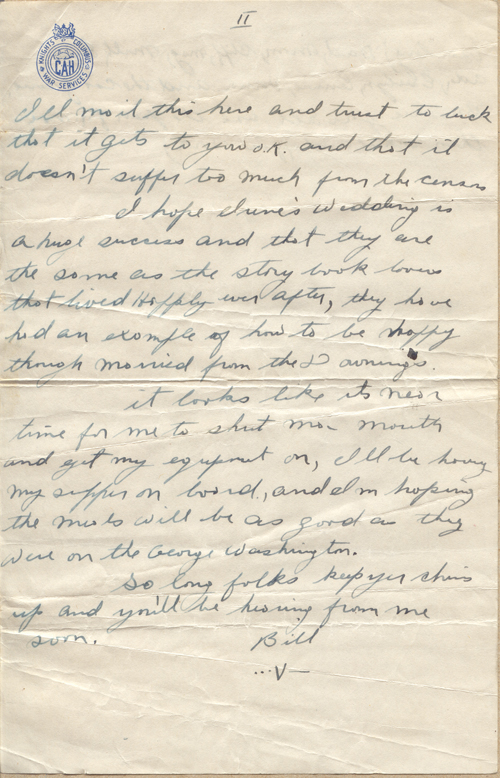 II
KNIGHTS COLUMBUS
CAH
WAR SERVICES
I'll mail this here and trust to luck
that it gets to you O.K. and that it
doesn't suffer too much from the censor
I hope Irene's Wedding is
a huge success and that they are
the same as the story book lovers
that lived Happly ever after, they have
had an example of how to be happy
though married from the
it looks like its near
time for me to shut mon mouth
and get my equipment on, I'll be having
my supper on board, and I'm hoping
the meals will be as good as they
were on the George Washington.
So long folks keep yer chins
up and you'll be hearing from me
soon. Bill
...V—